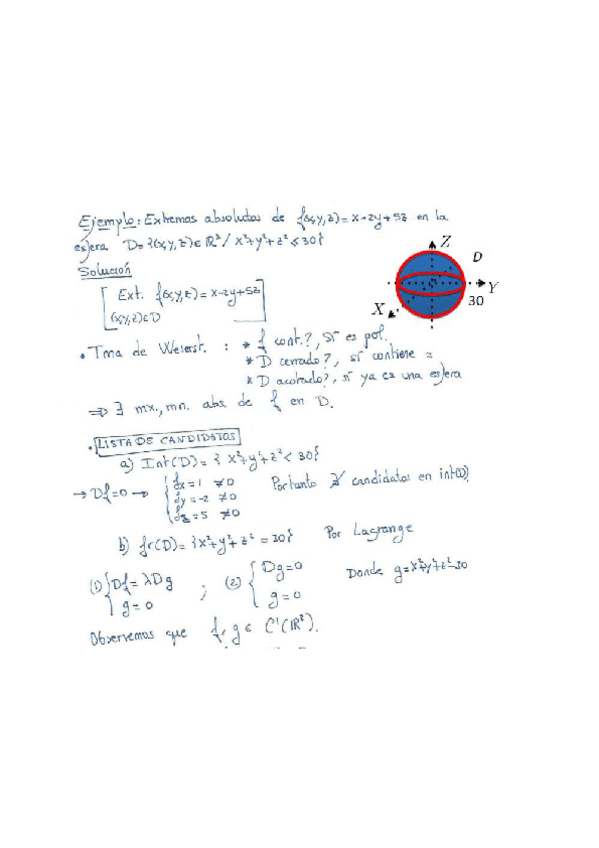 Ejemplo: Extremos absolutos de f(x,y,z)=x-2y+5z en la
esfera D={(x,y,z)∈ℝ³/ x²+y²+z² ≤ 30}
Solución
Ext. f(x,y,z)=x-2y+5z
(x,y,z)∈D
Z
D
Y
30
X
• Tma de Weierst. : * f cont.?, sí es pol.
* D cerrado?, sí contiene =
* D acotado?, sí ya es una esfera
⇒ ∃ mx., mn. abs de f en D.
• LISTA DE CANDIDATOS
a) Int(D)={ x²+y²+z² < 30}
→ Df=0 → { fx=1 ≠0
fy=-2 ≠0
fz=5 ≠0
Portanto ∄ candidatos en int(D)
b) fr(D)={x²+y²+z² =30} Por Lagrange
(1) { Df=λDg
g=0
; (2) { Dg=0
g=0
Donde g=x²+y²+z²-30
Observemos que f, g ∈ C¹(ℝ³).